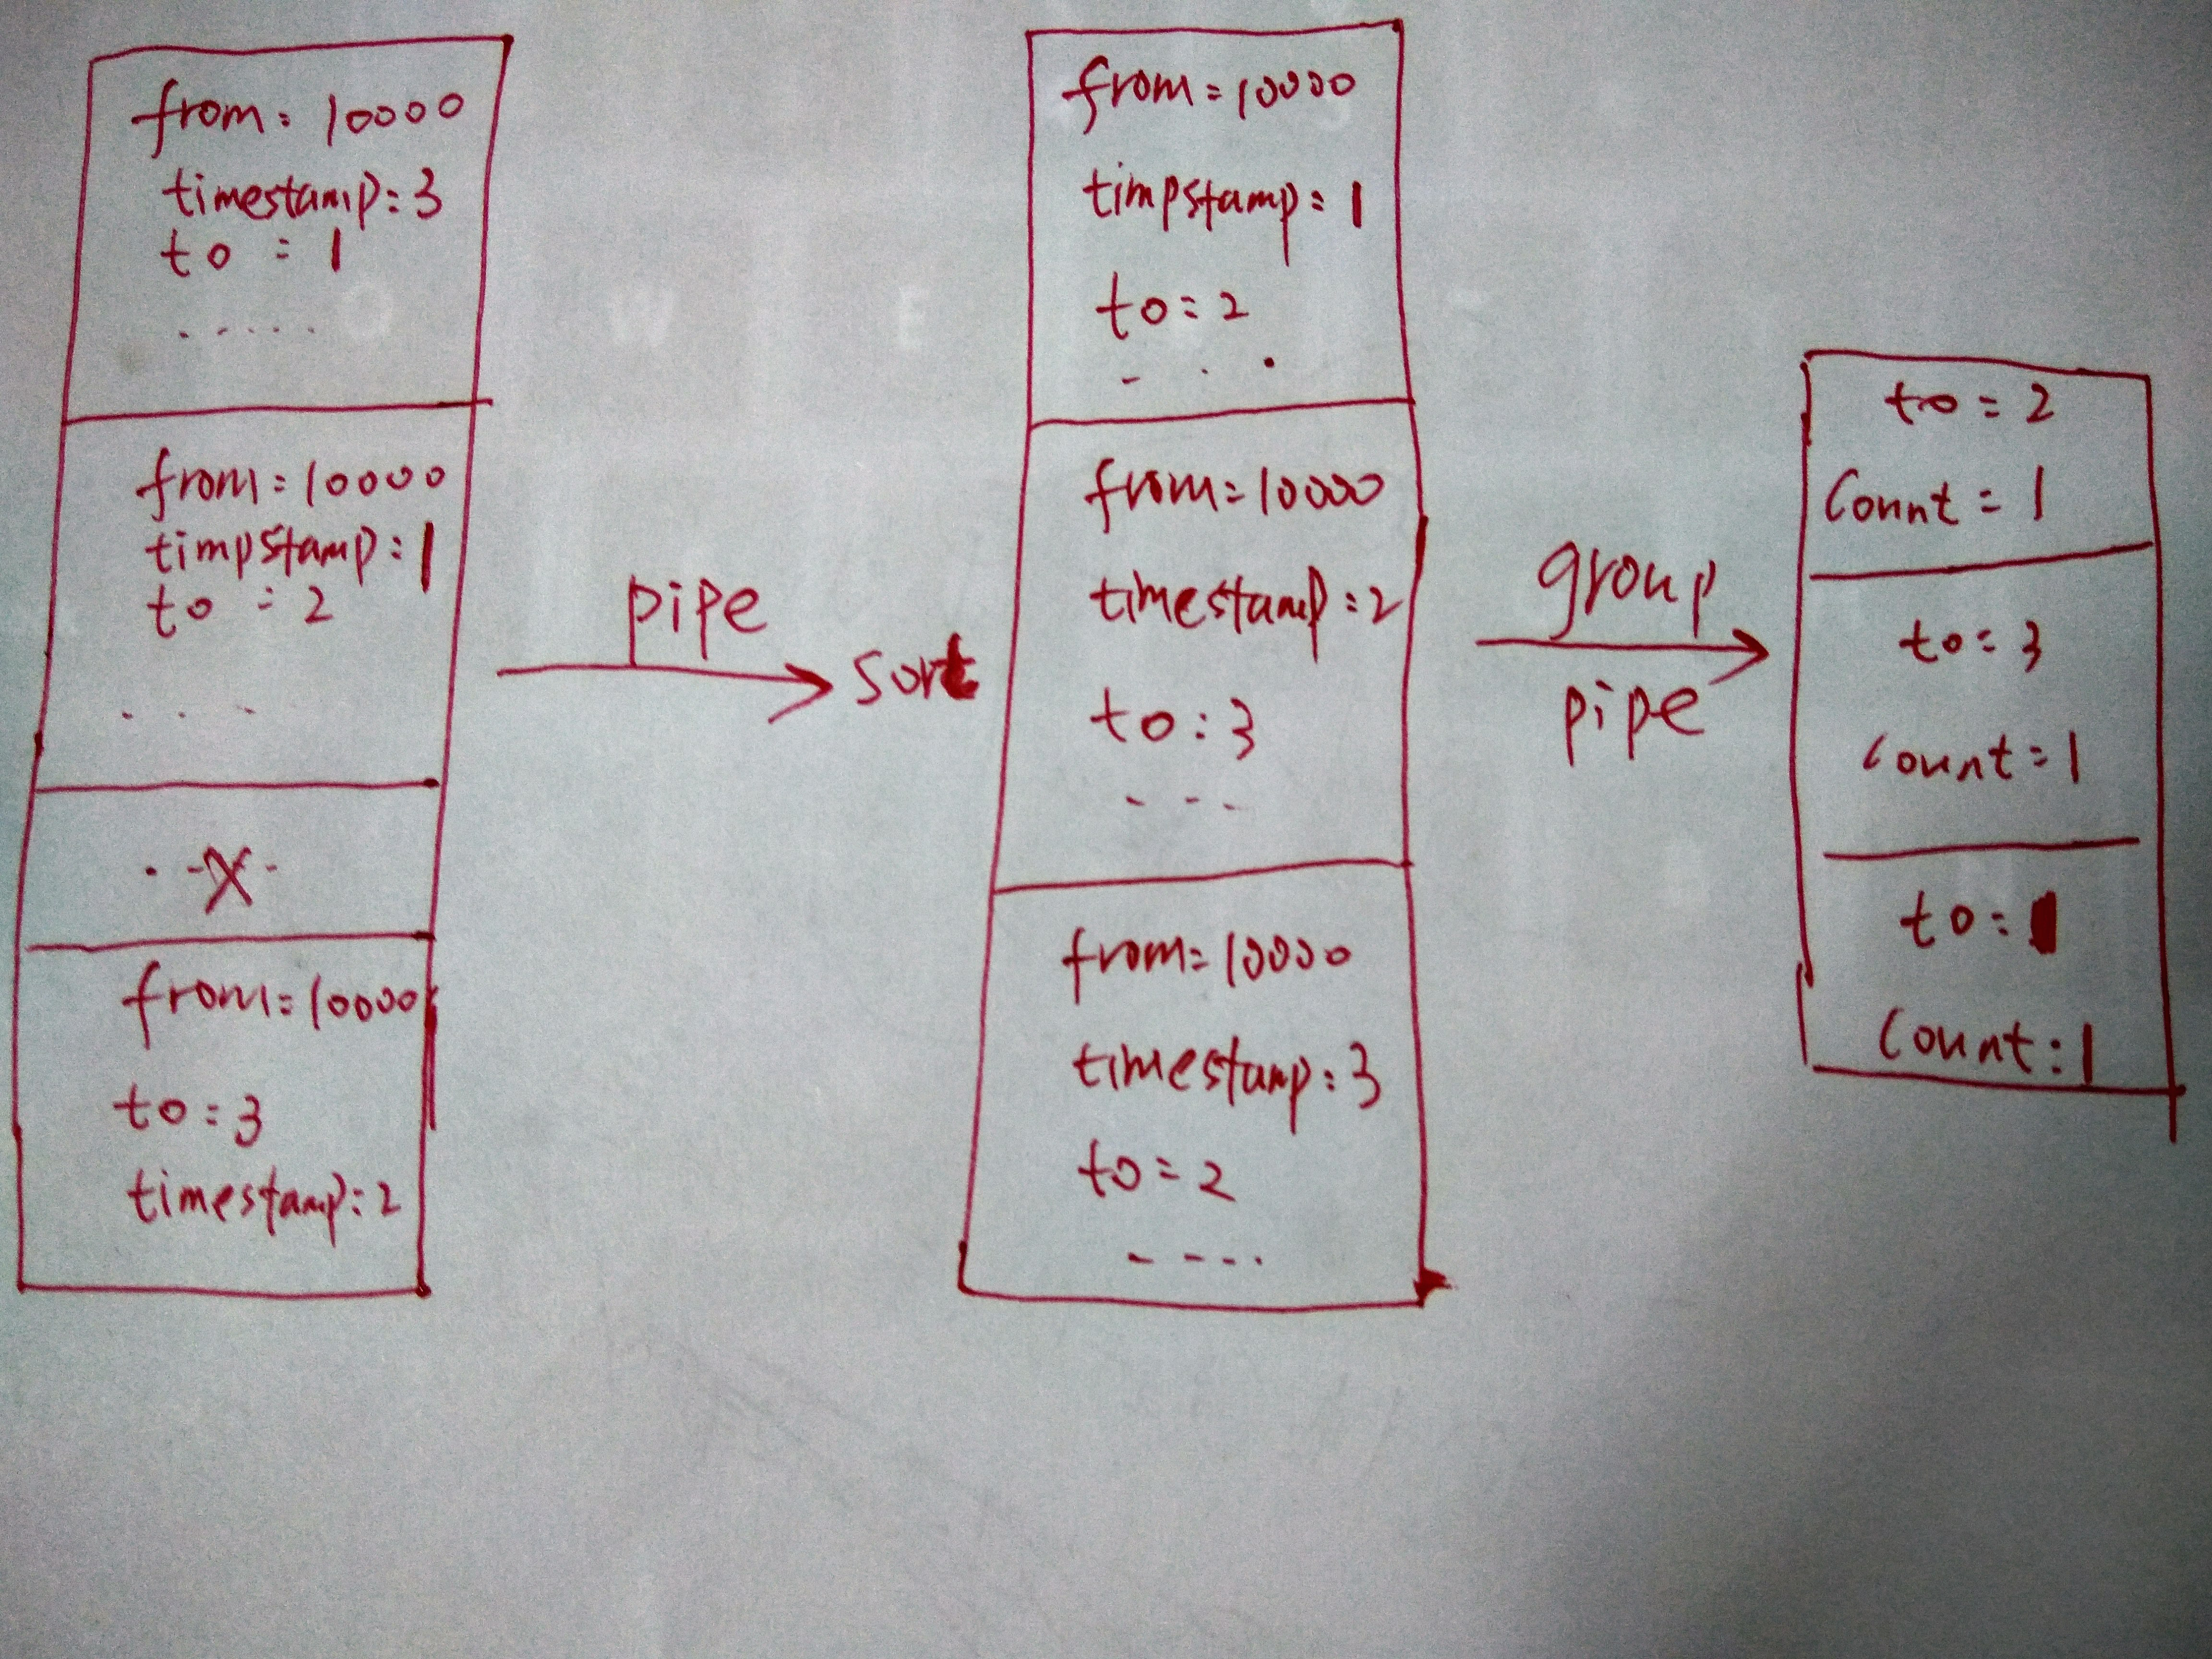 from = 10000
timestamp = 3
to = 1
.....
from = 10000
timpstamp = 1
to = 2
...
x
from = 10000
to = 3
timestamp = 2
pipe
sort
from = 10000
timpstamp = 1
to = 2
...
from = 10000
timestamp = 2
to = 3
...
from = 10000
timestamp = 3
to = 2
....
group
pipe
to = 2
Count = 1
to = 3
Count = 1
to = 1
Count = 1